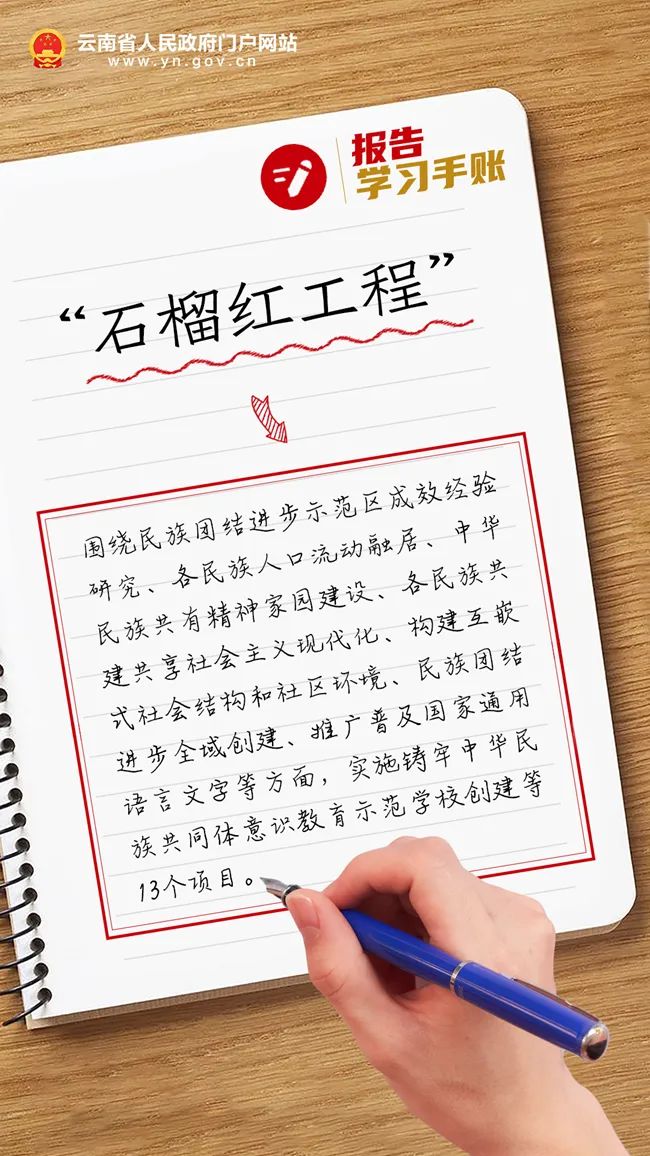 云南省人民政府门户网站
www.yn.gov.cn
报告
学习手账
“石榴红工程”
围绕民族团结进步示范区成效经验
研究、各民族人口流动融居、中华
民族共有精神家园建设、各民族共
建共享社会主义现代化、构建互嵌
式社会结构和社区环境、民族团结
进步全域创建、推广普及国家通用
语言文字等方面，实施铸牢中华民
族共同体意识教育示范学校创建等
13个项目。